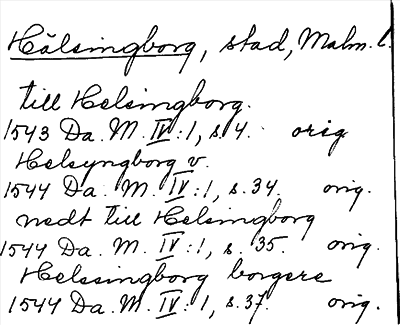 Hälsingborg, stad, Malm. l.
till Helsingborg.
1543 Da. M. IV:1, s. 4. orig
Helsyngborg v.
1544 Da. M. IV:1, s. 34. orig.
nedt till Helsingborg
1544 Da. M. IV:1, s. 35. orig.
Helssingborg borgere
1544 Da. M. IV:1, s. 37. orig.